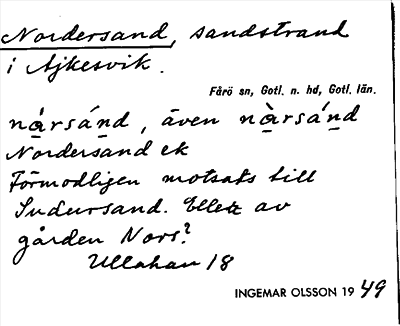 Nordersand, sandstrand
i Ajkesvik.
Fårö sn, Gotl. n. hd, Gotl. län.
nårsánd, även nàrsánd
Nordersand ek
Förmodligen motsats till
Sudursand. Eller av
gården Nors?
Ullahau 18
INGEMAR OLSSON 1949